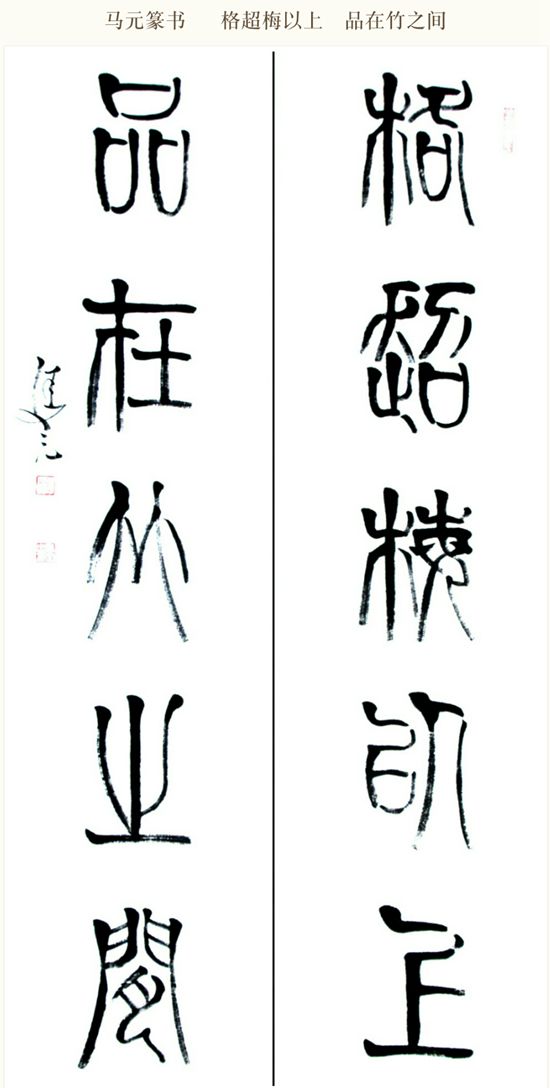 马元篆书 格超梅以上 品在竹之间
格超梅以上
品在竹之間